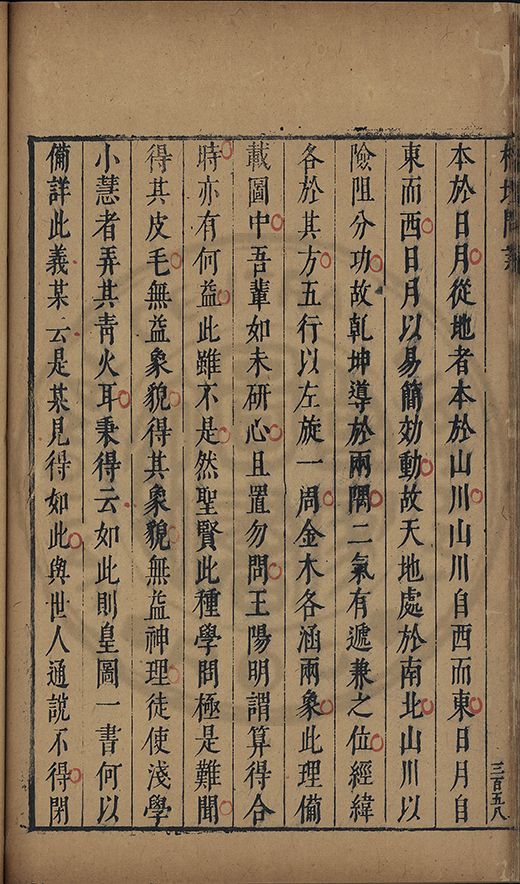 本於日月從地者本於山川山川自西而東日月自
東而西日月以易簡効動故天地處於南北山川以
險阻分功故乾坤導於兩隅二氣有遞兼之位經緯
各於其方五行以左旋一周金木各涵兩象此理備
載圖中吾輩如未研心且置勿問王陽明謂算得合
時亦有何益此雖不是然聖賢此種學問極是難聞
得其皮毛無益象貌得其象貌無益神理徒使淺學
小慧者弄其青火耳秉得云如此則皇圖一書何以
備詳此義某云是某見得如此與世人通說不得閉
三百五八